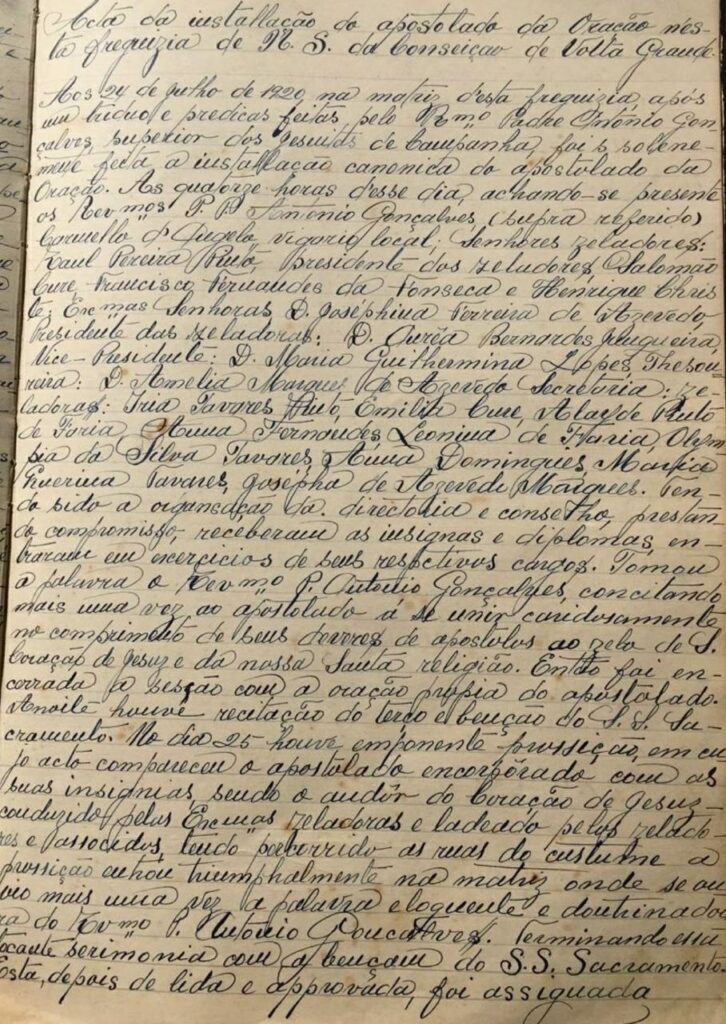 Acta da installação do apostolado da Oração nes-
ta freguizia de N. S. da Conseição de Volta Grande.
Aos 24 de Julho de 1920 na matriz d'esta freguizia, após
um triduo e predicas feitas pelo Rmo Padre Antonio Gon-
çalves, superior dos Jesuits de Campanha, foi solene-
mente feita a installação canonica do apostolado da
Oração. As quatorze horas d'esse dia, achando-se presente
os Revmos P. P. Antônio Gonçalves, (supra referido)
Carmello d'Angelo vigario local; Senhores zeladores:
Raul Pereira Pinto, presidente dos zeladores, Salomão
Cure, Francisco Fernandes da Fonseca e Henrique Chris
te; Excmas Senhoras D. Joséphina Ferreira de Azevedo,
Presidente das zeladoras: D. Aurêa Bernardes
Vice-Presidente: D. Maria Guilhermina Lopes, Thesou-
reira: D. Amelia Marques de Azevedo Secretaria: ze-
ladoras: Iria Tavares Pinto, Emilia Cure, Alayde Pinto
de Faria, Anna Fernandes, Leonina de Faria, Olym-
pia da Silva Tavares, Anna Domingues, Maria
Guerina Tavares, Josepha de Azevedo Marques. Ten-
do sido a organeação da directoria e conselho, prestan
do compromisso, receberam as insignas e diplomas, en-
traram em exercicios de seus respctivos cargos. Tomou
a palavra o Revmo P. Antonio Gonçalves, concitando
mais uma vez ao apostolado á se unir caridosamente
no comprimento de seus deveres de apostolos ao zelo de S.
Coração de Jesuz e da nossa Santa religião. Então foi en-
corrada a sesção com a oração propia do apostolado.
Anoite houve recitação do terco e bencão do S. S. Sa-
cramento. No dia 25 houve emponente prossição, em cu
jo acto compareceu o apostolado encorporado com as
suas insignias, sendo o andôr do Coração de Jesuz-
conduzido pelas Excmas zeladoras e ladeado pelos zelado-
res e associdos, tendo percorrido as ruas do custume a
prossição entrou triumphalmente na matriz onde se ou
vio mais uma vez a palavra eloquente e doutrinado
ra do Revmo P. Antonio Goncalves. Terminando essa
tocante serimonia com a bençam do S. S. Sacramento.
Esta, depois de lida e approvada, foi assignada